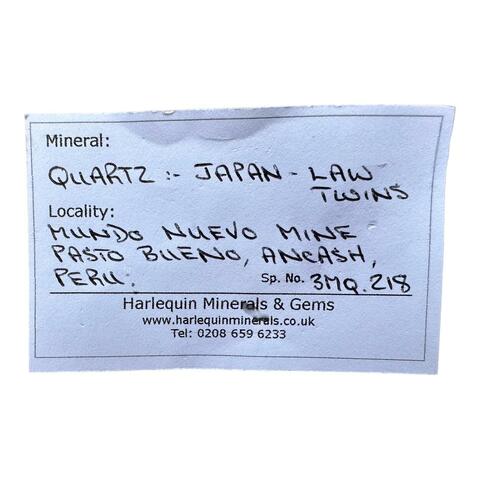 Mineral:
QUARTZ :- JAPAN - LAW
TWINS
Locality:
MUNDO NUEVO MINE
PASTO BUENO, ANCASH,
PERU.
Sp. No. 3MQ.218
Harlequin Minerals & Gems
www.harlequinminerals.co.uk
Tel: 0208 659 6233